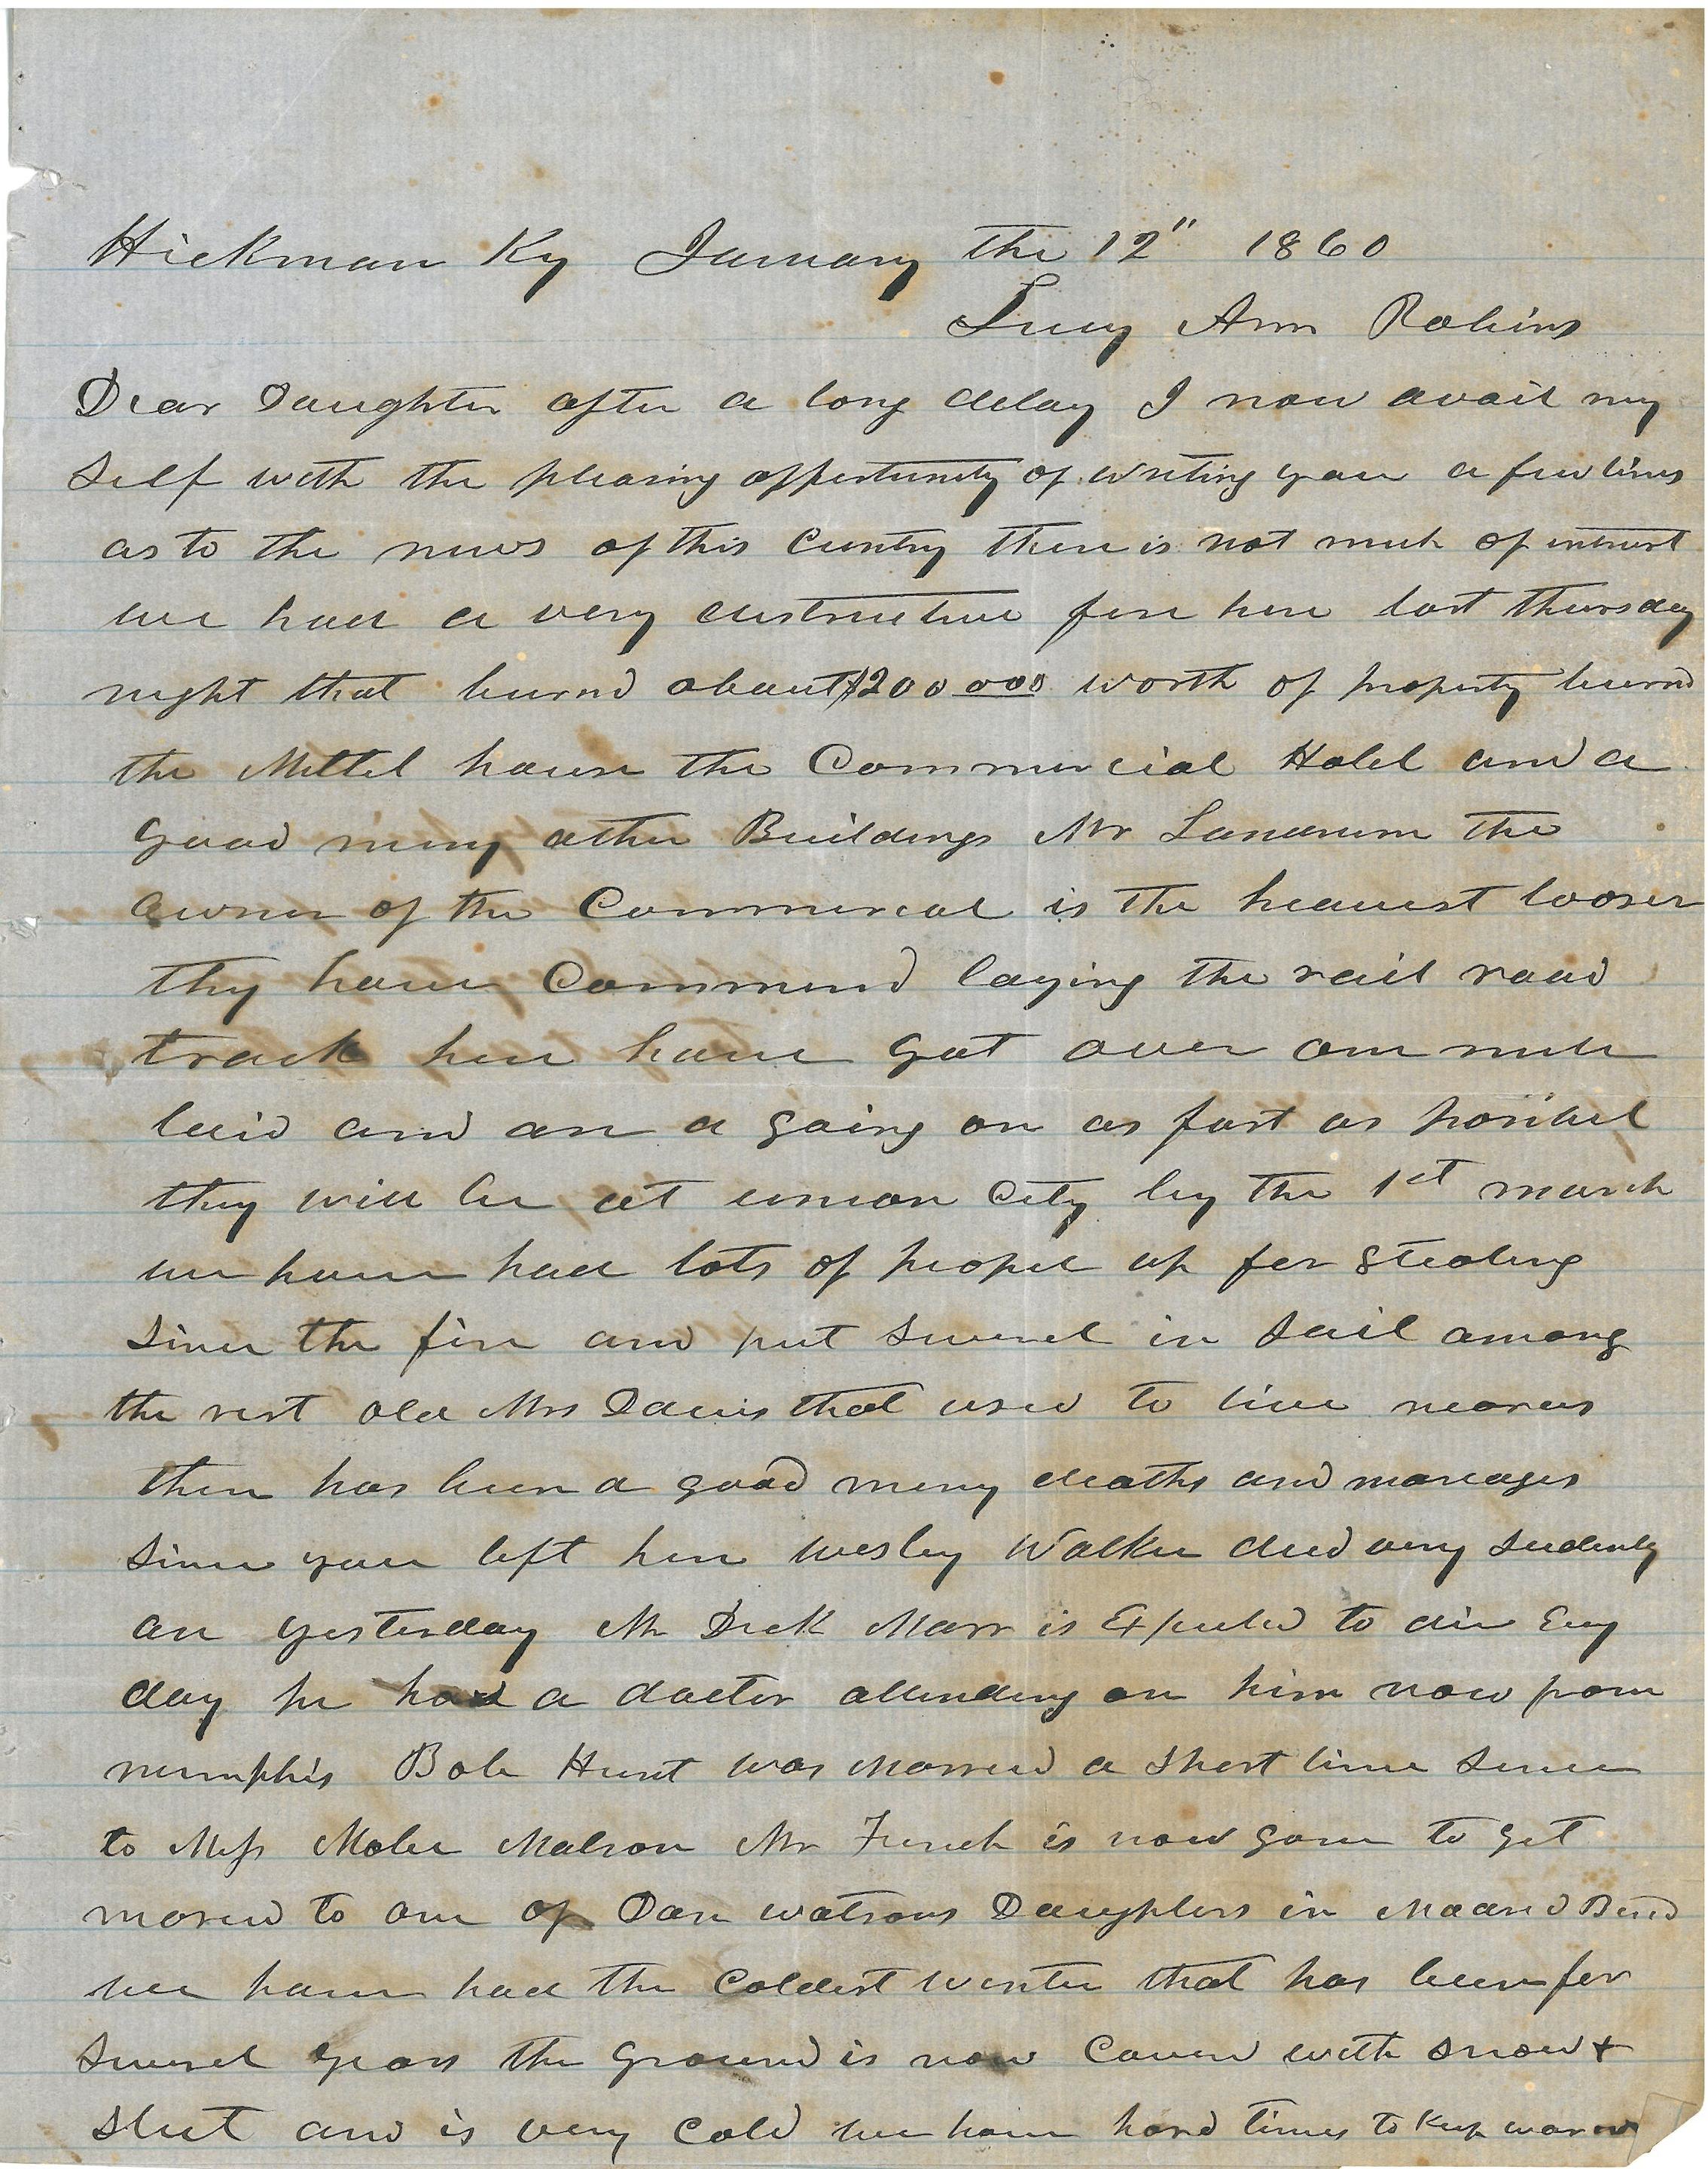 Hickman Ky January the 12" 1860
Lucy Ann Robins
Dear Daughter after a long delay I now avail my
Self with the pleasing oppertunity of writing you a few lines
as to the news of this Cuntry there is not much of intrest
we had a very distructive fire here last thursday
night that burnd about $200000 worth of property burnd
the house the Commercial Hotel and a
good meny other Buildings Mr Landrum the
owner of the Commercal is the heavest looser
they have Commencd laying the rail road
track here have got over one mile
laid and are a going on as fast as posibel
they will be at union City by the 1st march
we have had lots of peopel up for Stealing
Since the fire and put Severel in Jail among
the rest old Mrs Davis that used to live near us
there has been a good meny deaths and mareages
Since you left here Wesley Walker died very Sudenly
on yesterday Mr Dick Marr is Expected to die Evry
day he has a doctor attending on him now from
memphis Bob Hunt was Marred a Short time Since
to Miss Mr French is now gone to get
mared to one of Dan watsons Daughters in Bend
we have had the Coldest winter that has been for
Severel years the ground is now Coverd with snow &
Sleet and is very Cold we have hard times to Keep warm